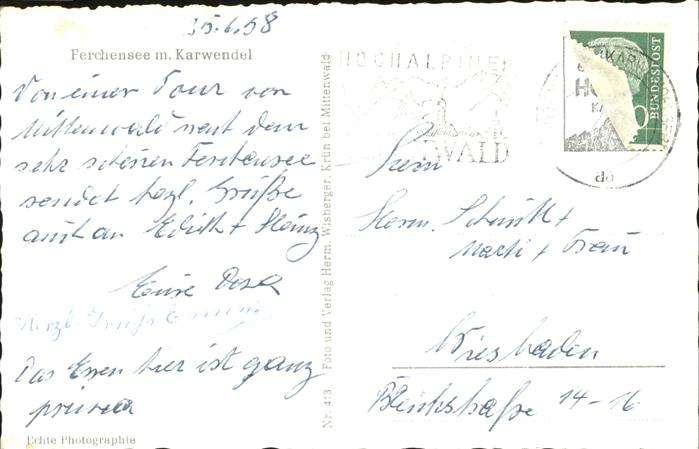 25.6.58
Ferchensee m. Karwendel
Von einer Tour von
Mittenwald nach dem
sehr schönen Ferchensee
sendet herzl. Grüße
auch an Edith + Heinz
Eure Rosa
Herzl. Grüße
Das Essen hier ist ganz
prima
Echte Photographie
Nr. 413 Foto und Verlag Herm. Wisberger, Krün bei Mittenwald
HOCHALPINE
WALD
BUNDESPOST
Herrn
Herm. Schmitt +
+ Frau
Wiesbaden
Bleichstraße 14-16